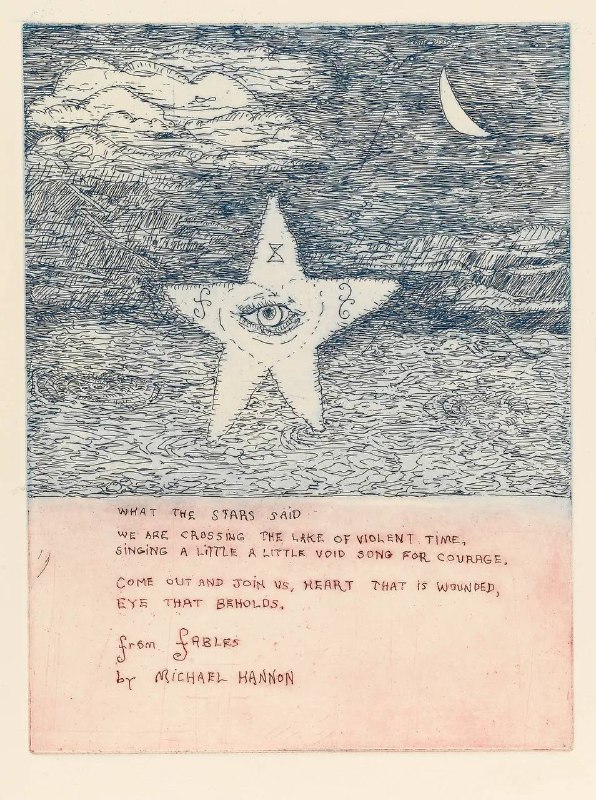 WHAT THE STARS SAID
WE ARE CROSSING THE LAKE OF VIOLENT TIME,
SINGING A LITTLE A LITTLE VOID SONG FOR COURAGE.
COME OUT AND JOIN US, HEART THAT IS WOUNDED,
EYE THAT BEHOLDS.
from FABLES
by MICHAEL HANNON